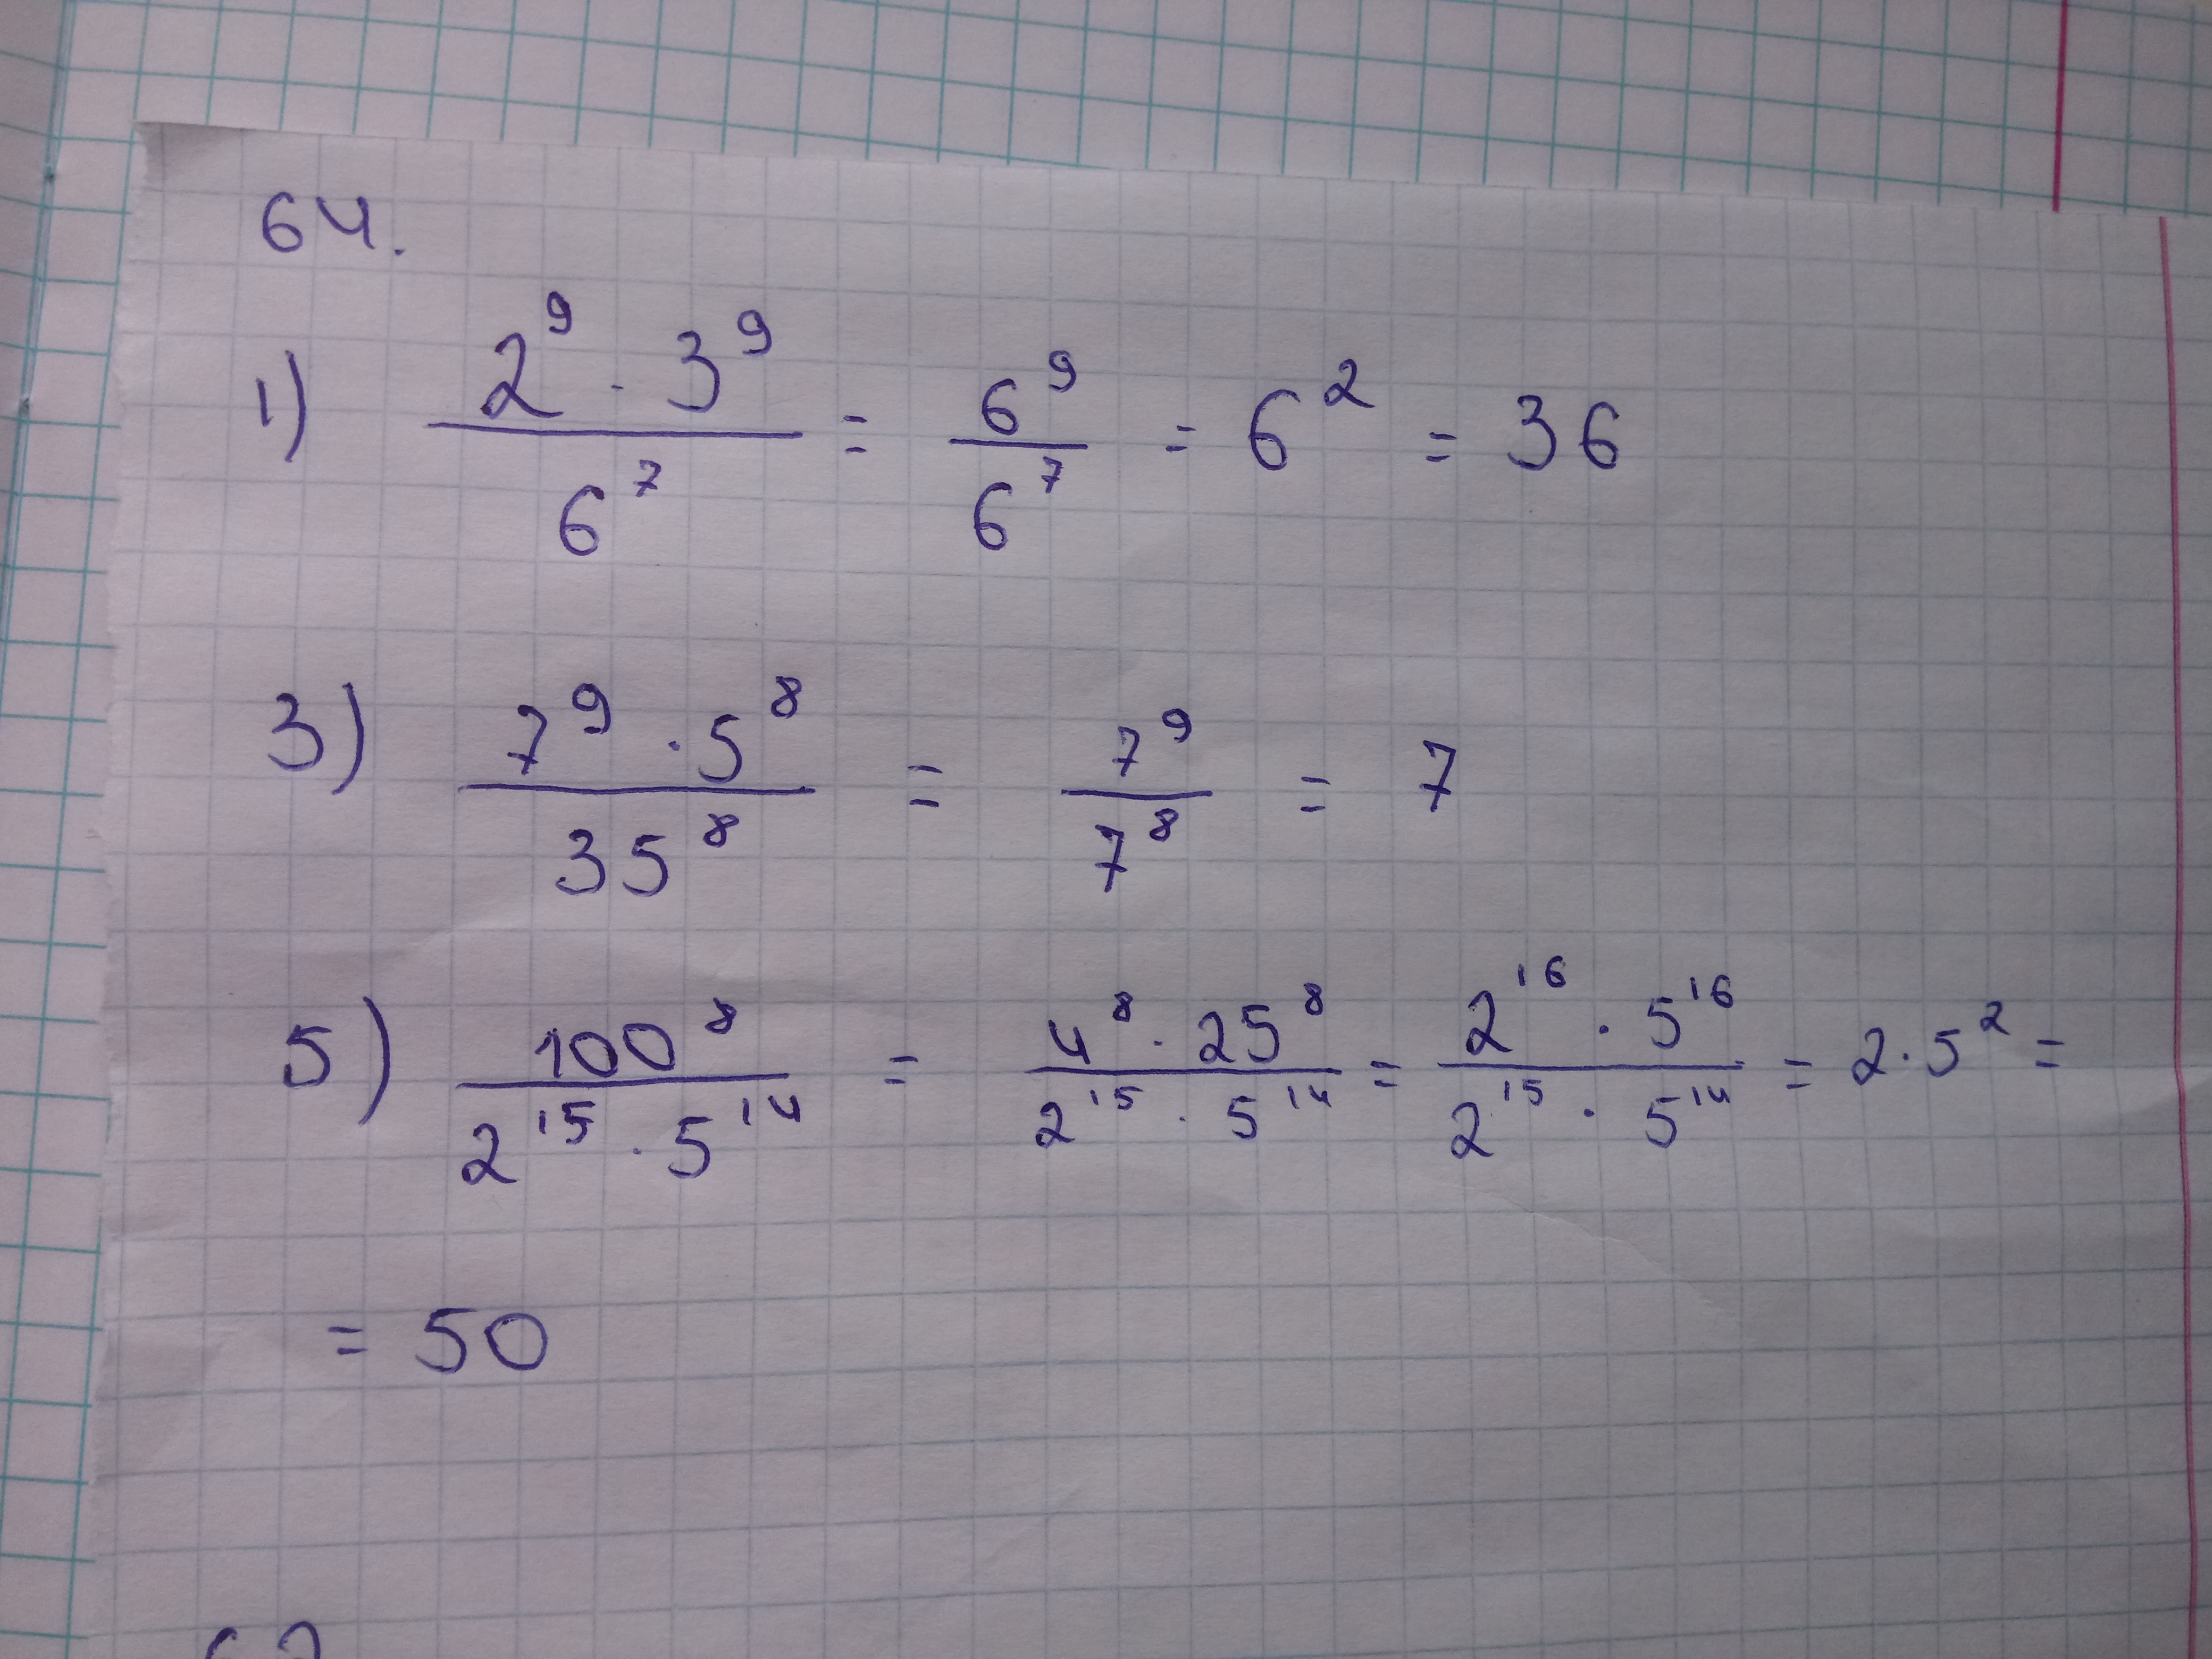 64.
1) (2^9 · 3^9)/(6^7) = (6^9)/(6^7) = 6^2 = 36
3) (7^9 · 5^8)/(35^8) = (7^9)/(7^8) = 7
5) (100^8)/(2^15 · 5^14) = (4^8 · 25^8)/(2^15 · 5^14) = (2^16 · 5^16)/(2^15 · 5^14) = 2 · 5^2 =
= 50